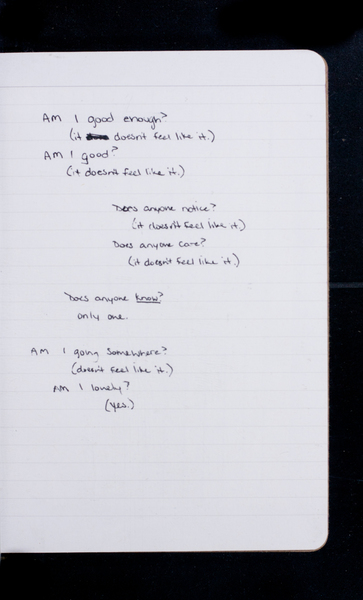 AM I good enough?
(it doesn't feel like it.)
AM I good?
(it doesn't feel like it.)
Does anyone notice?
(it doesn't feel like it.)
Does anyone care?
(it doesn't feel like it.)
Does anyone know?
only one.
AM I going somewhere?
(doesn't feel like it.)
AM I lonely?
(yes.)